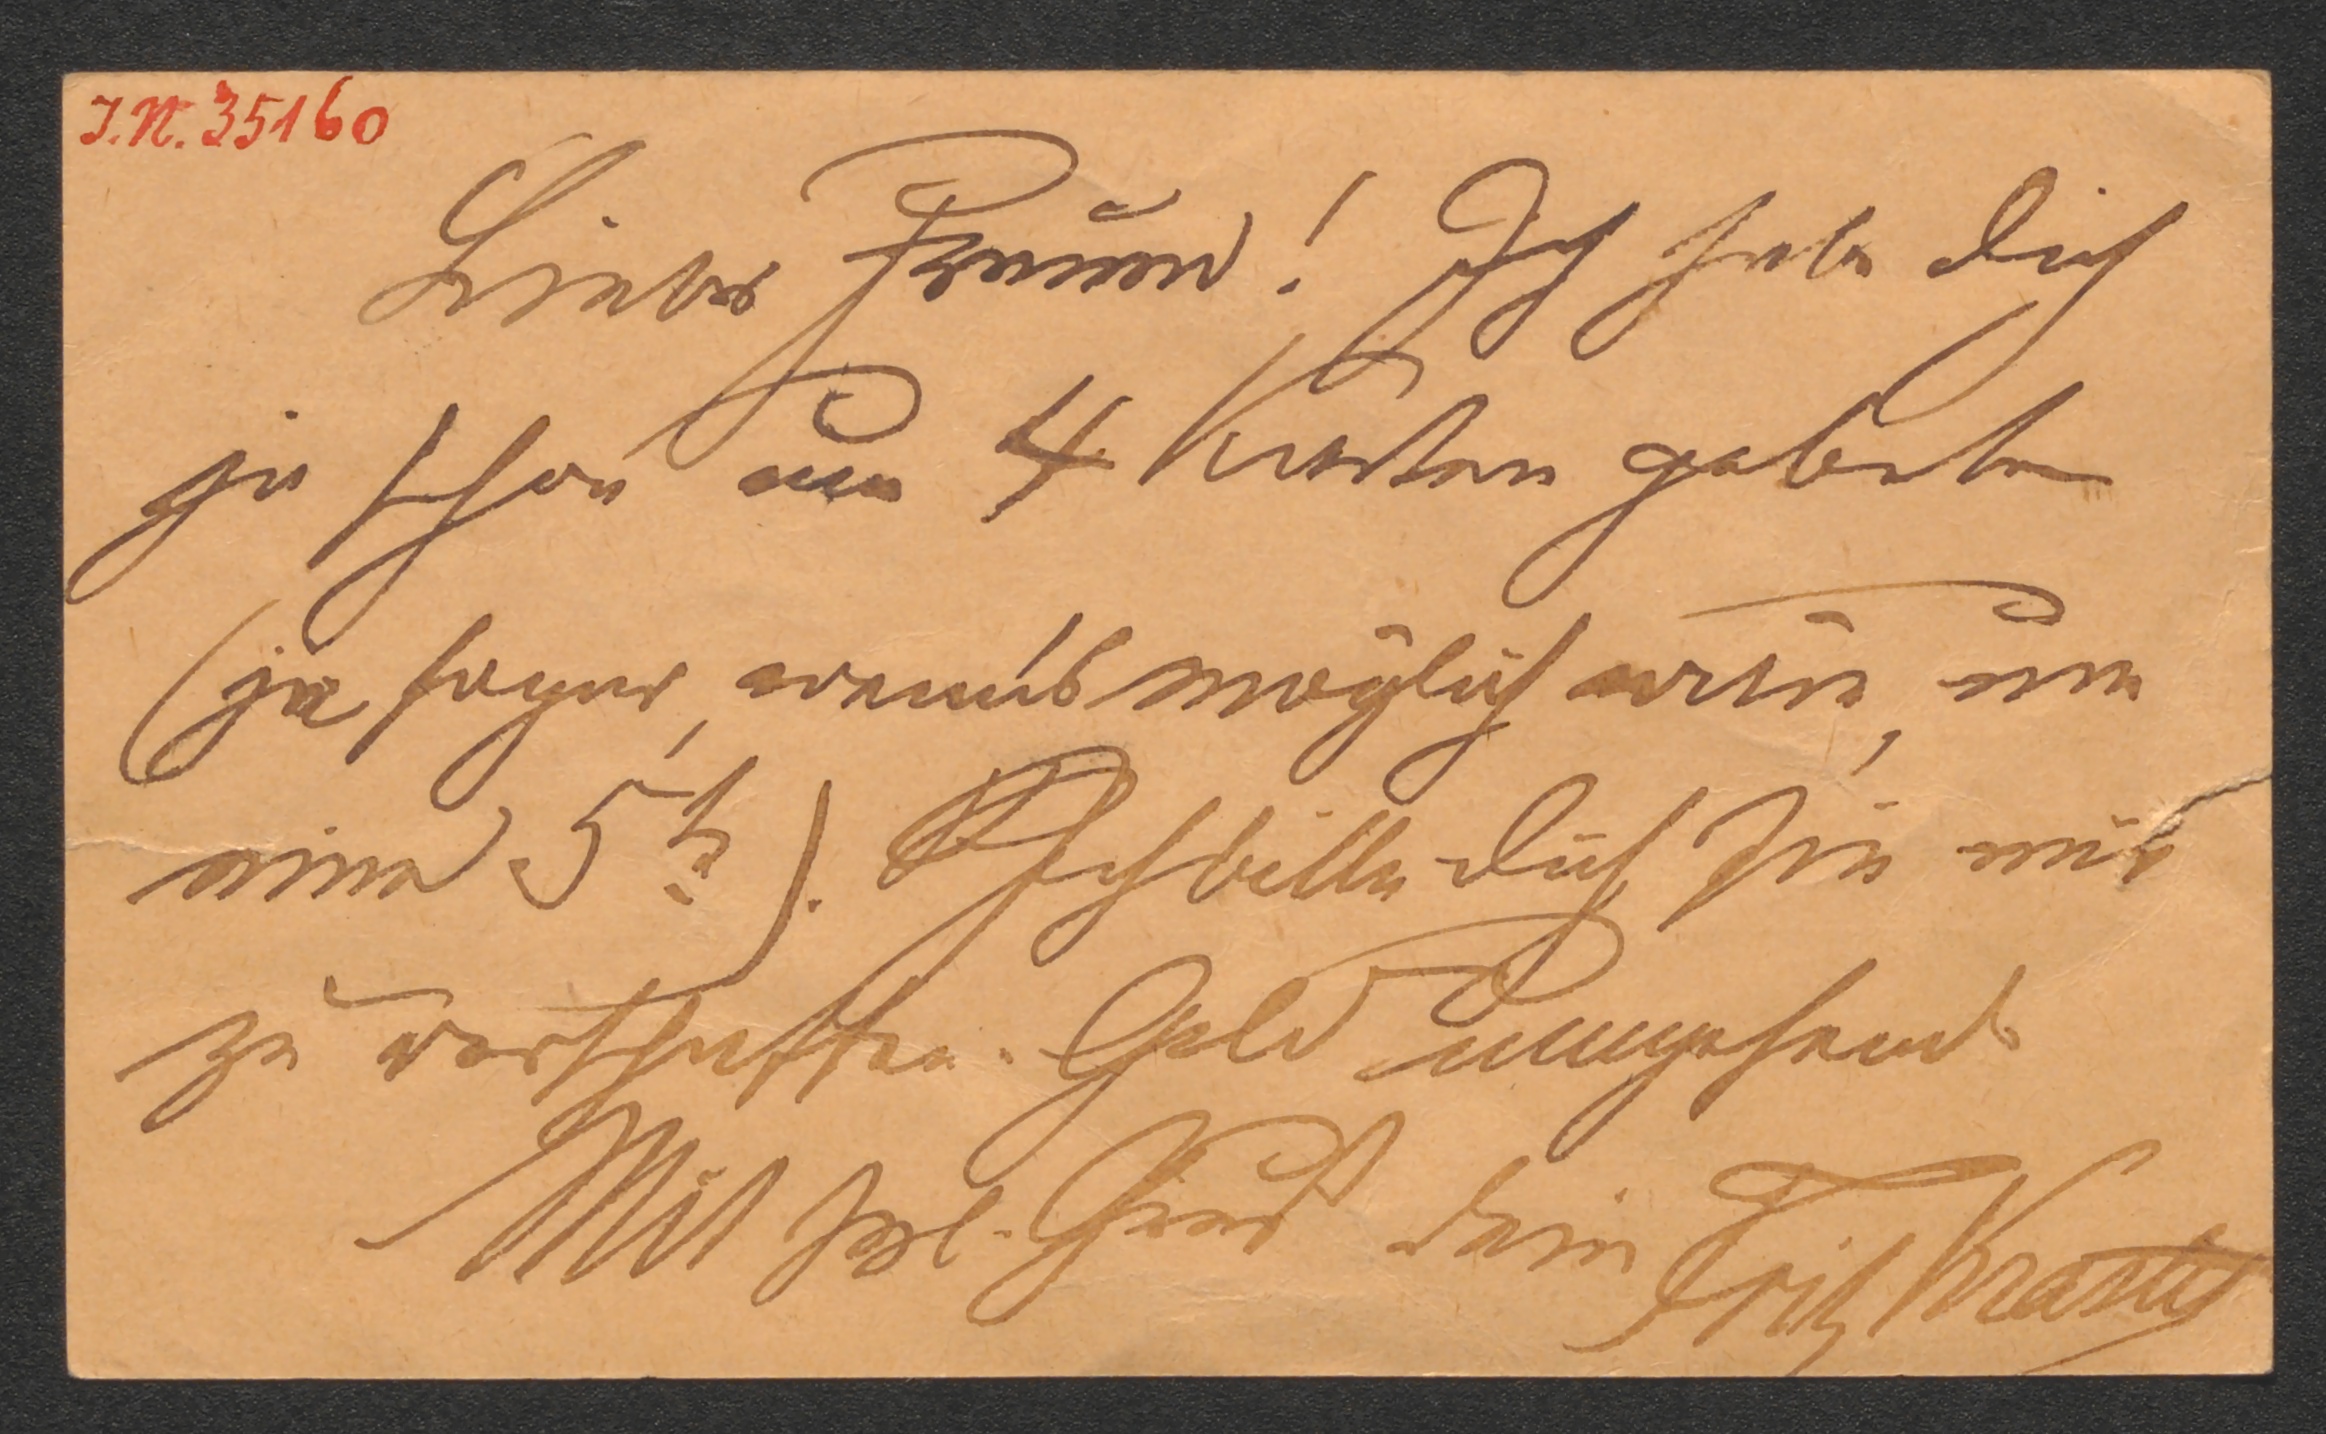 I.N. 35160
Lieber Freund! Ich habe Dich
ja schon um 4 Karten gebeten
(ja sogar, wenn's möglich wäre, um
eine 5te). Ich bitte Dich sie mir
zu verschaffen. Geld umgehend
Mit herzl. Gruß Dein Fritz